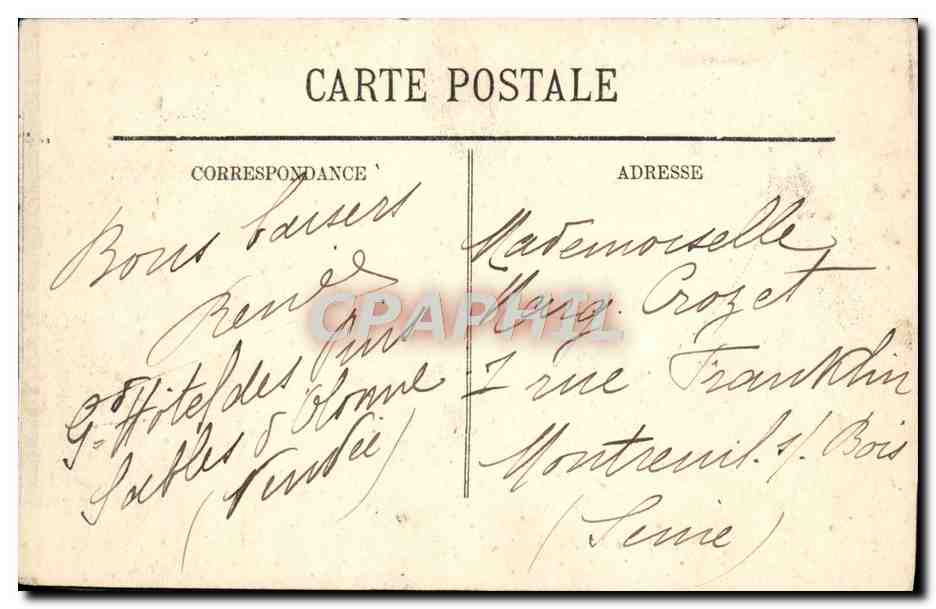 CARTE POSTALE
CORRESPONDANCE
ADRESSE
Bons baisers
Renée
Gd Hôtel des Pins
Sables d'Olonne
(Vendée)
Mademoiselle
Marg. Crozet
7 rue Franklin
Montreuil s/ Bois
(Seine)
CPAPHIL